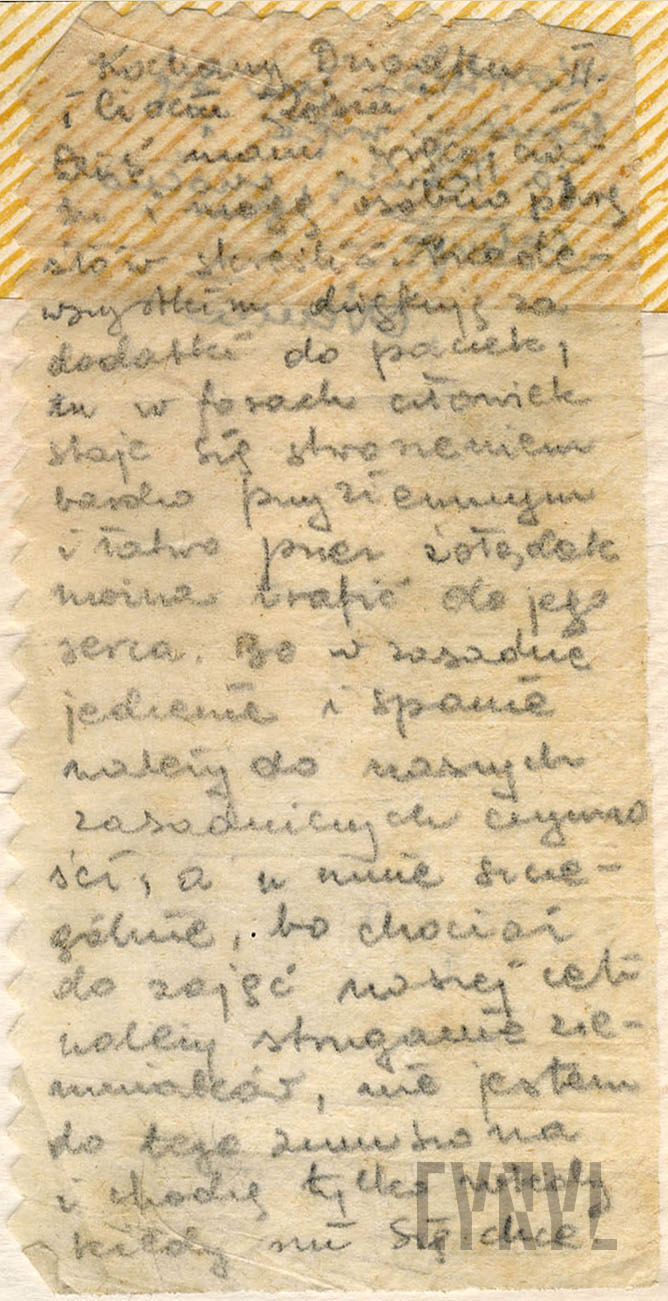 Kochany Dziadku
i Ciociu
Dziś mam
tu i mogę osobno parę
słów skreślić. Przede-
wszystkim dziękuję za
dodatki do paczek,
tu w forach człowiek
staje się stworzeniem
bardzo przyziemnym
i łatwo przez żołądek
można trafić do jego
serca. Bo w zasadzie
jedzenie i spanie
należy do naszych
zasadniczych czynno
ści, a u mnie szcze-
gólnie, bo chociaż
do zajęć naszej celi
należy struganie zie-
mniaków, nie jestem
do tego zmuszona
i chodzę tylko wtedy
kiedy mi się chce